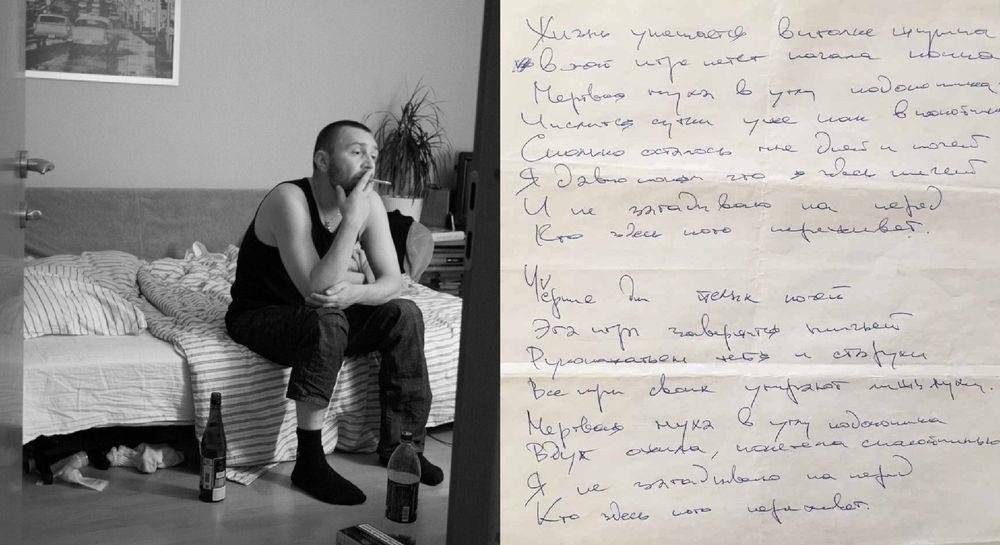 Жизнь умещается в иголке шприца
В этой игре нет начала конца
Мертвая муха в углу подоконника
Числится сутки уже как в покойниках
Сколько осталось мне дней и ночей
Я давно понял что я здесь ничей
И не загадываю на перед
Кто здесь кого переживет.
Чёрные дни белых ночей
Эта игра завершится ничьей
Рукопожатьем и старухи
Все при своих умирают лишь мухи.
Мертвая муха в углу подоконника
Вдруг ожила, полетела спокойненько
Я не загадываю на перед
Кто здесь кого переживет.